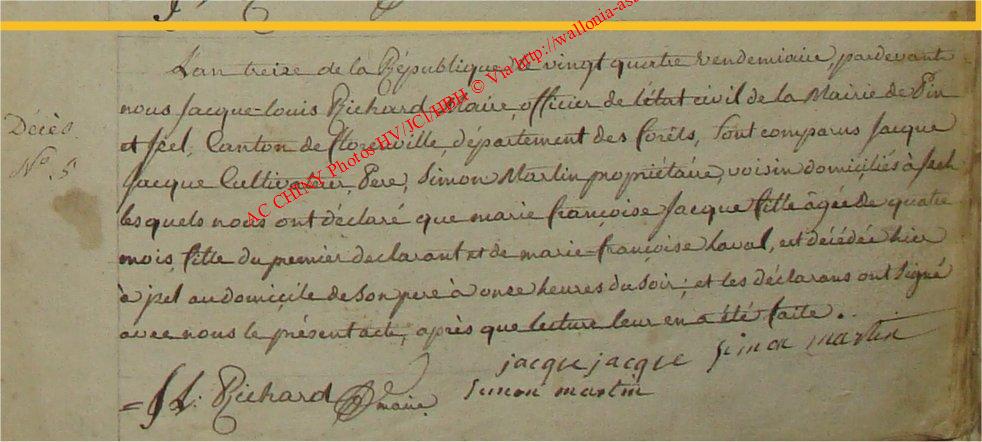 L'an treize de la République, le vingt quatre vendemiaire, pardevant
nous Jacque-Louis Richard Maire, officier de l'état civil de la Mairie de Pin
et Izel, Canton de florenville, département des forêts, sont comparus Jacque
Jacque Cultivateur, Pere, Simon Martin propriétaire, voisin domiciliés à Izel
les quels nous ont déclaré que marie françoise Jacque fille âgée de quatre
mois, fille du premier declarant et de marie-françoise Laval, est décédée hier
à izel au domicile de son pere à onse heures du soir; et les déclarans ont signé
avec nous le présent acte, après que lecture leur en a été faite.
Décès
N.º 3
jacque jacque simon martin
simon martin
J L: Richard maire
AC CHINY Photos HV/JCI/HBH © Via http://wallonia-as